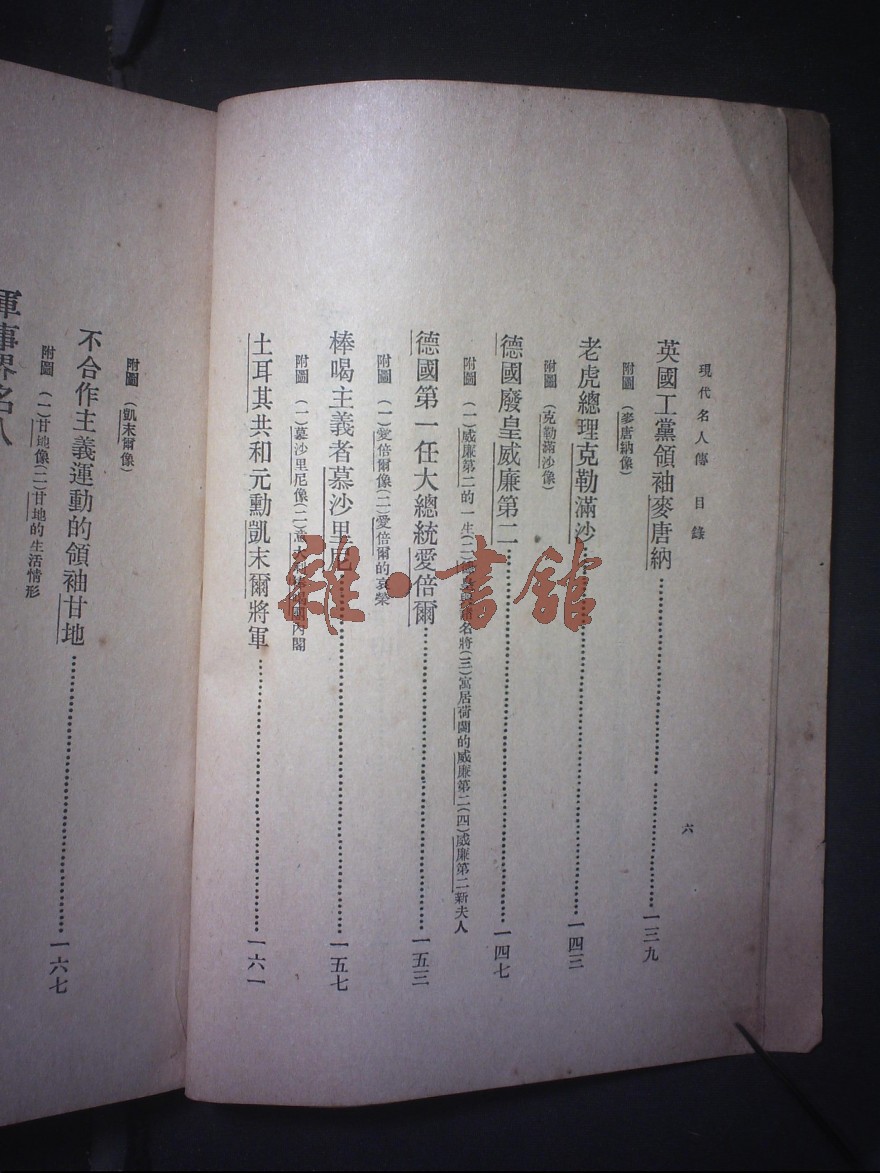 現代名人傳 目錄
六
英國工黨領袖麥唐納…………一三九
附圖 (麥唐納像)
老虎總理克勒滿沙…………一四三
附圖 (克勒滿沙像)
德國廢皇威廉第二…………一四七
附圖 (一)威廉第二的一生(二) 名將(三)寓居荷蘭的威廉第二(四)威廉第二新夫人
德國第一任大總統愛倍爾…………一五三
附圖 (一)愛倍爾像(二)愛倍爾的哀榮
棒喝主義者慕沙里尼…………一五七
附圖 (一)慕沙里尼像(二)意大利棒喝團內閣
土耳其共和元勳凱末爾將軍…………一六一
附圖 (凱末爾像)
不合作主義運動的領袖甘地…………一六七
附圖 (一)甘地像(二)甘地的生活情形
軍事界名人
雜·書館